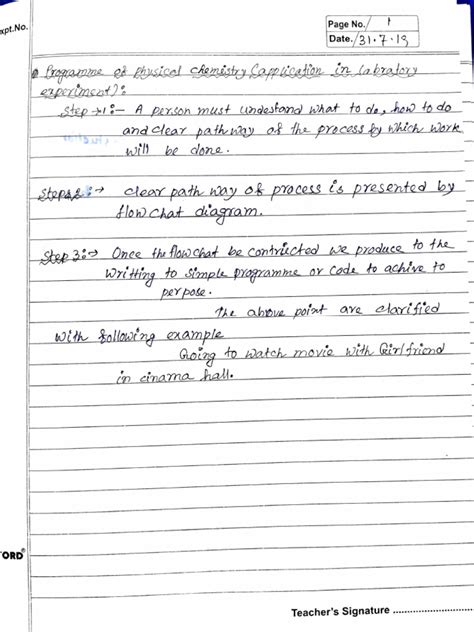 Page No. 1
xpt.No.
Date. 31.7.19
Programme of physical chemistry (application in labratory
experiment):
Step →1:– A person must undestand what to do, how to do
and clear path way of the process by which work
will be done.
Step 2:→ clear path way of process is presented by
flow chat diagram.
Step 3:→ Once the flow chat be contructed we produce to the
writting to simple programme or code to achive to
perpose.
The above point are clarified
with following example
Going to watch movie with Girlfriend
in cinama hall.
ORD
Teacher's Signature